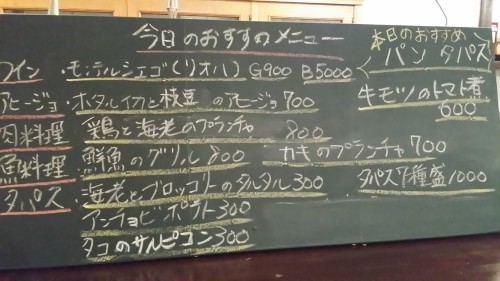 今日のおすすめメニュー
ワイン ・モンテルシエゴ(リオハ) G900 B5000
アヒージョ・ホタルイカと枝豆のアヒージョ700
肉料理 鶏と海老のプランチャ 800
魚料理 鮮魚のグリル 800 カキのプランチャ 700
タパス ・海老とブロッコリーのタルタル300
アンチョビポテト300
タコのサルピコン300
本日のおすすめ
パン タパス
牛モツのトマト煮
600
タパス7種盛1000